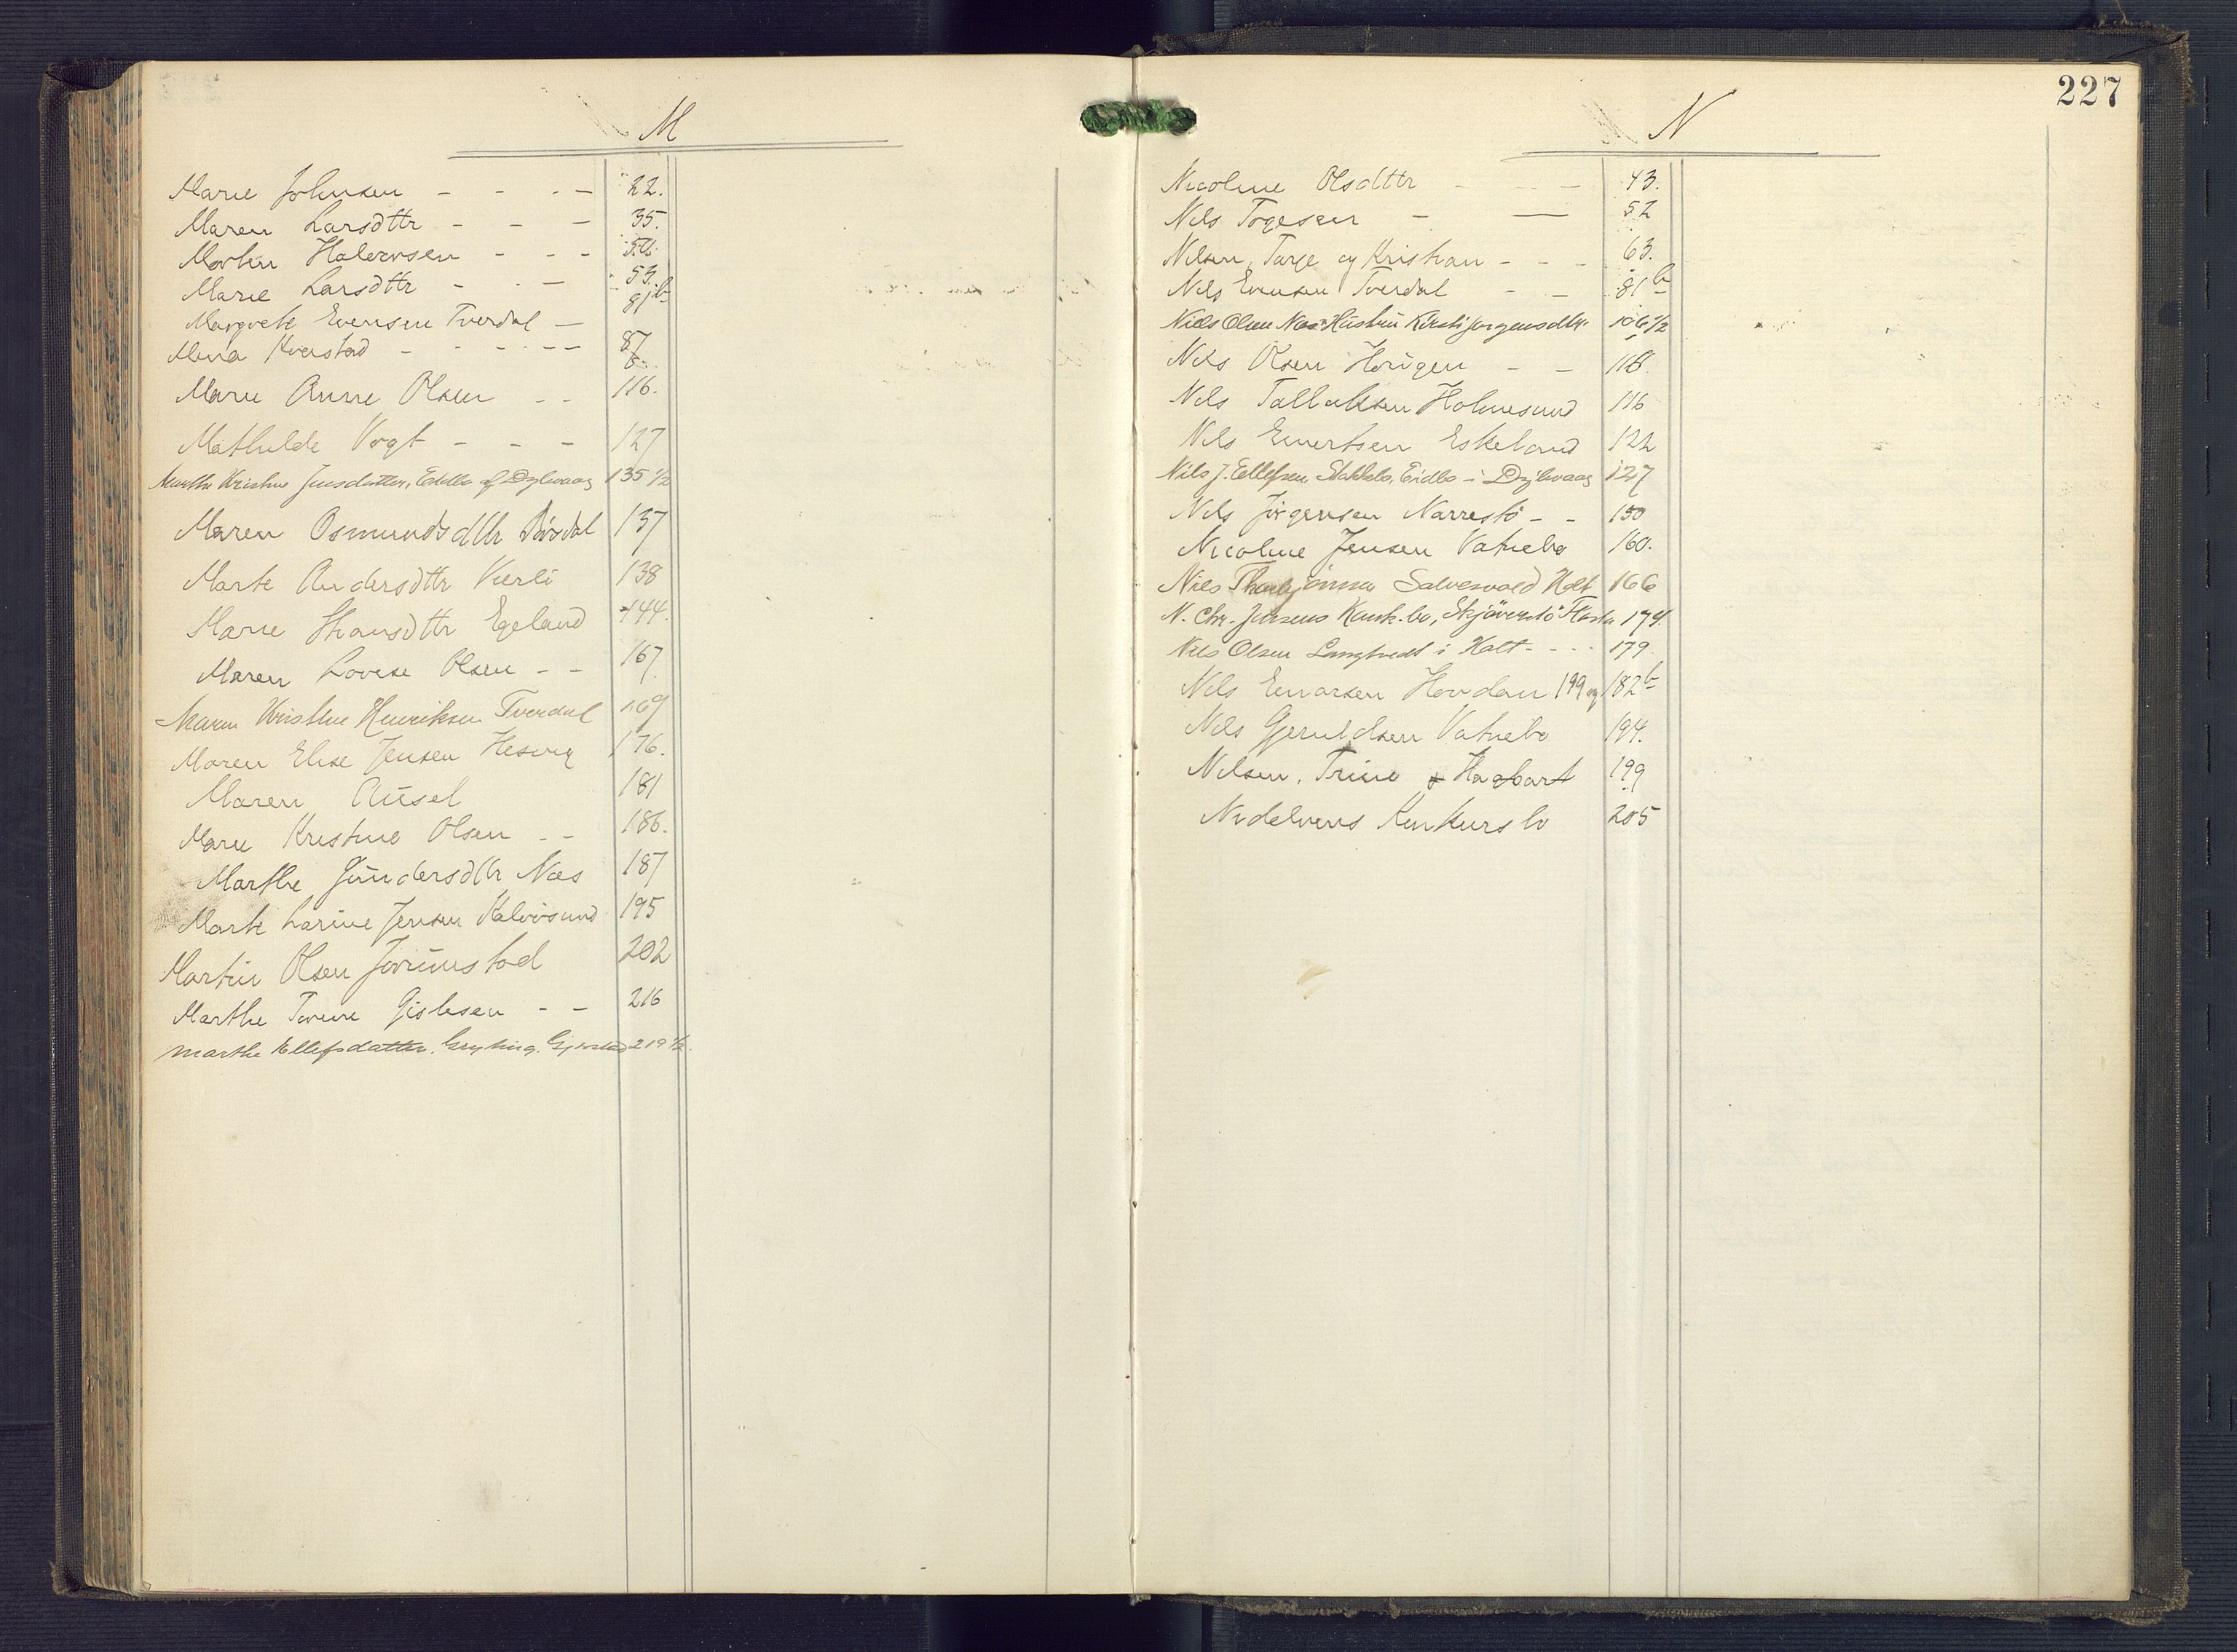 M
Marie Johnsen - - - - 22.
Maren Larsdttr - - - 35.
Martin Halvorsen - - - 52.
Marie Larsdttr - - - 53.
Margrete Evensen Tverdal - 81 b
Mena Kverstad - - - - - 87
Marie Anne Olsen - - 116.
Mathilde Vogt - - - 127
Marthe Kristine Jensdatter, Eidbo af Dybvaag 135 1/2
Maren Osmundsdttr 137
Marte Andersdttr Vierli 138
Marie Hansdttr Egeland 144.
Maren Lovise Olsen - - 167
Maren Kristine Henriksen Tverdal 169
Maren Elise Jensen Hesvig 176.
Maren Ausel 181
Marie Kristine Olsen - - 186.
Marthe Gundersdttr Næs 187
Marte Larine Jensen Kalvøsund 195
Martin Olsen Jorunstad 202
Marthe Torine Gislesen - - 216
Marthe Ellefsdatter. Gryting. Gjerstad 219 1/2
227
N
Nicoline Olsdttr - - - 43.
Nils Togesen - — 52
Nilsen, Targe og Kristian - - - 63.
Nils Evensen Tverdal - - 81 b
Niels Olsen Næs Hustru Kirsti Jørgensdtr. 106 1/2
Nils Olsen Hougen - - 118
Nils Tallaksen Holmesund 116
Nils Evertsen Eskeland 122
Nils J. Ellefsen Eidbo i Dybvaag 127
Nils Jørgensen Narrestø - - 150
Nicoline Jensen Vatnebo 160.
Nils Salvesvold Holt 166
N. Chr. Jensens Konk.bo, Skjæverstø 174.
Nils Olsen Langtvedt i Holt - - - - 179.
Nils Einarsen Hovdan 199 og 182 b
Nils Gjeruldsen Vatnebo 194.
Nilsen, Trine & Hagbart 199
Nidelvens Konkursbo 205